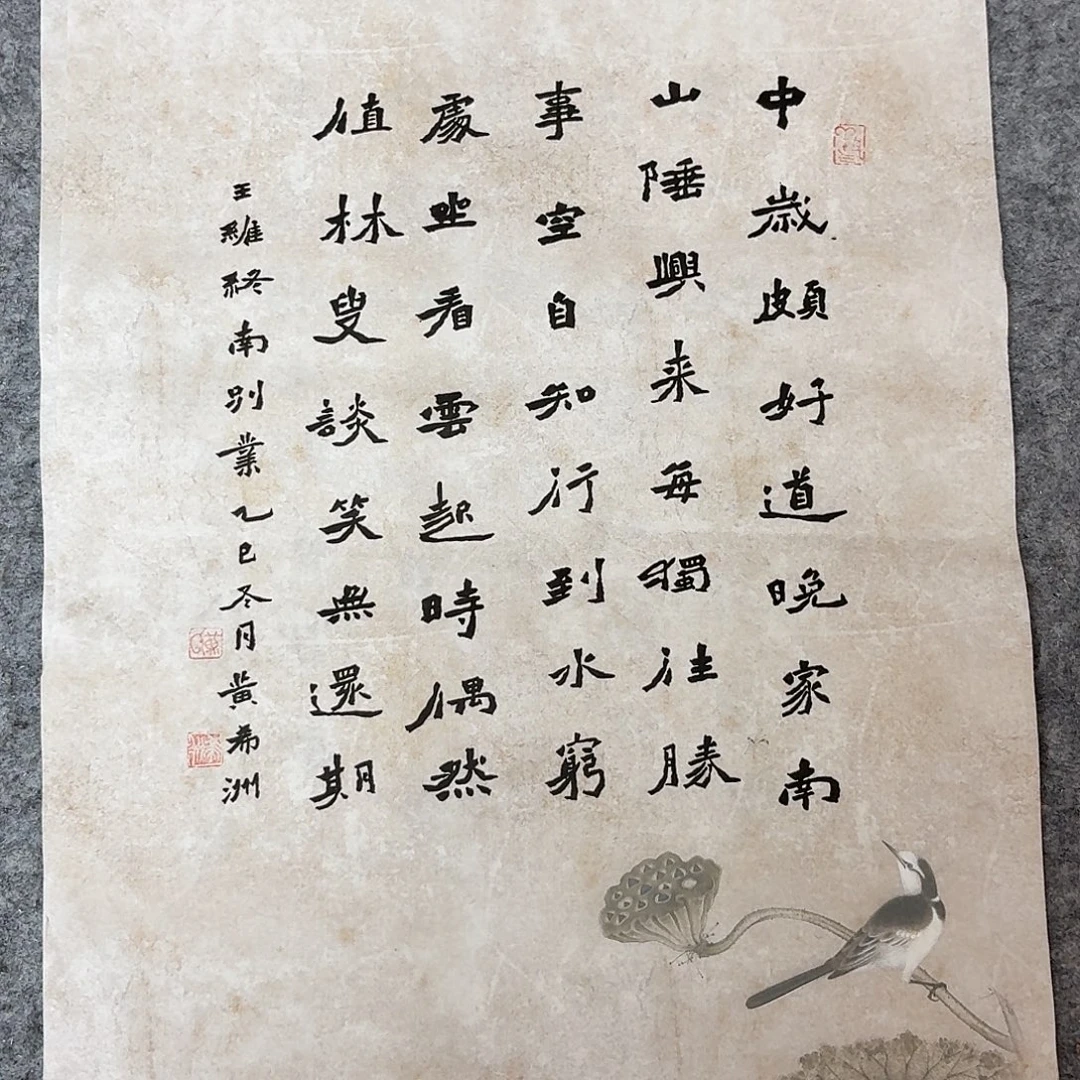 中歲頗好道晚家南
山陲興来每獨往勝
事空自知行到水窮
處坐看雲起時偶然
值林叟談笑無還期
王維終南別業乙巳冬月黃希洲